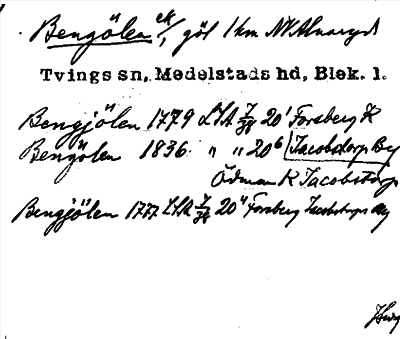 Bengölen ck/, göl 1 km NV Alnaryd
Tvings sn, Medelstads hd, Blek. l.
Bengjölen 1779 LSA 7/38 20¹ Forsberg K
Bengölen 1836 " " 20⁶ Jacobstorp By
Ödman K Jacobstorp
Bengjölen 1777 LSA 7/38 20⁴ Forsberg Jacobstorps By